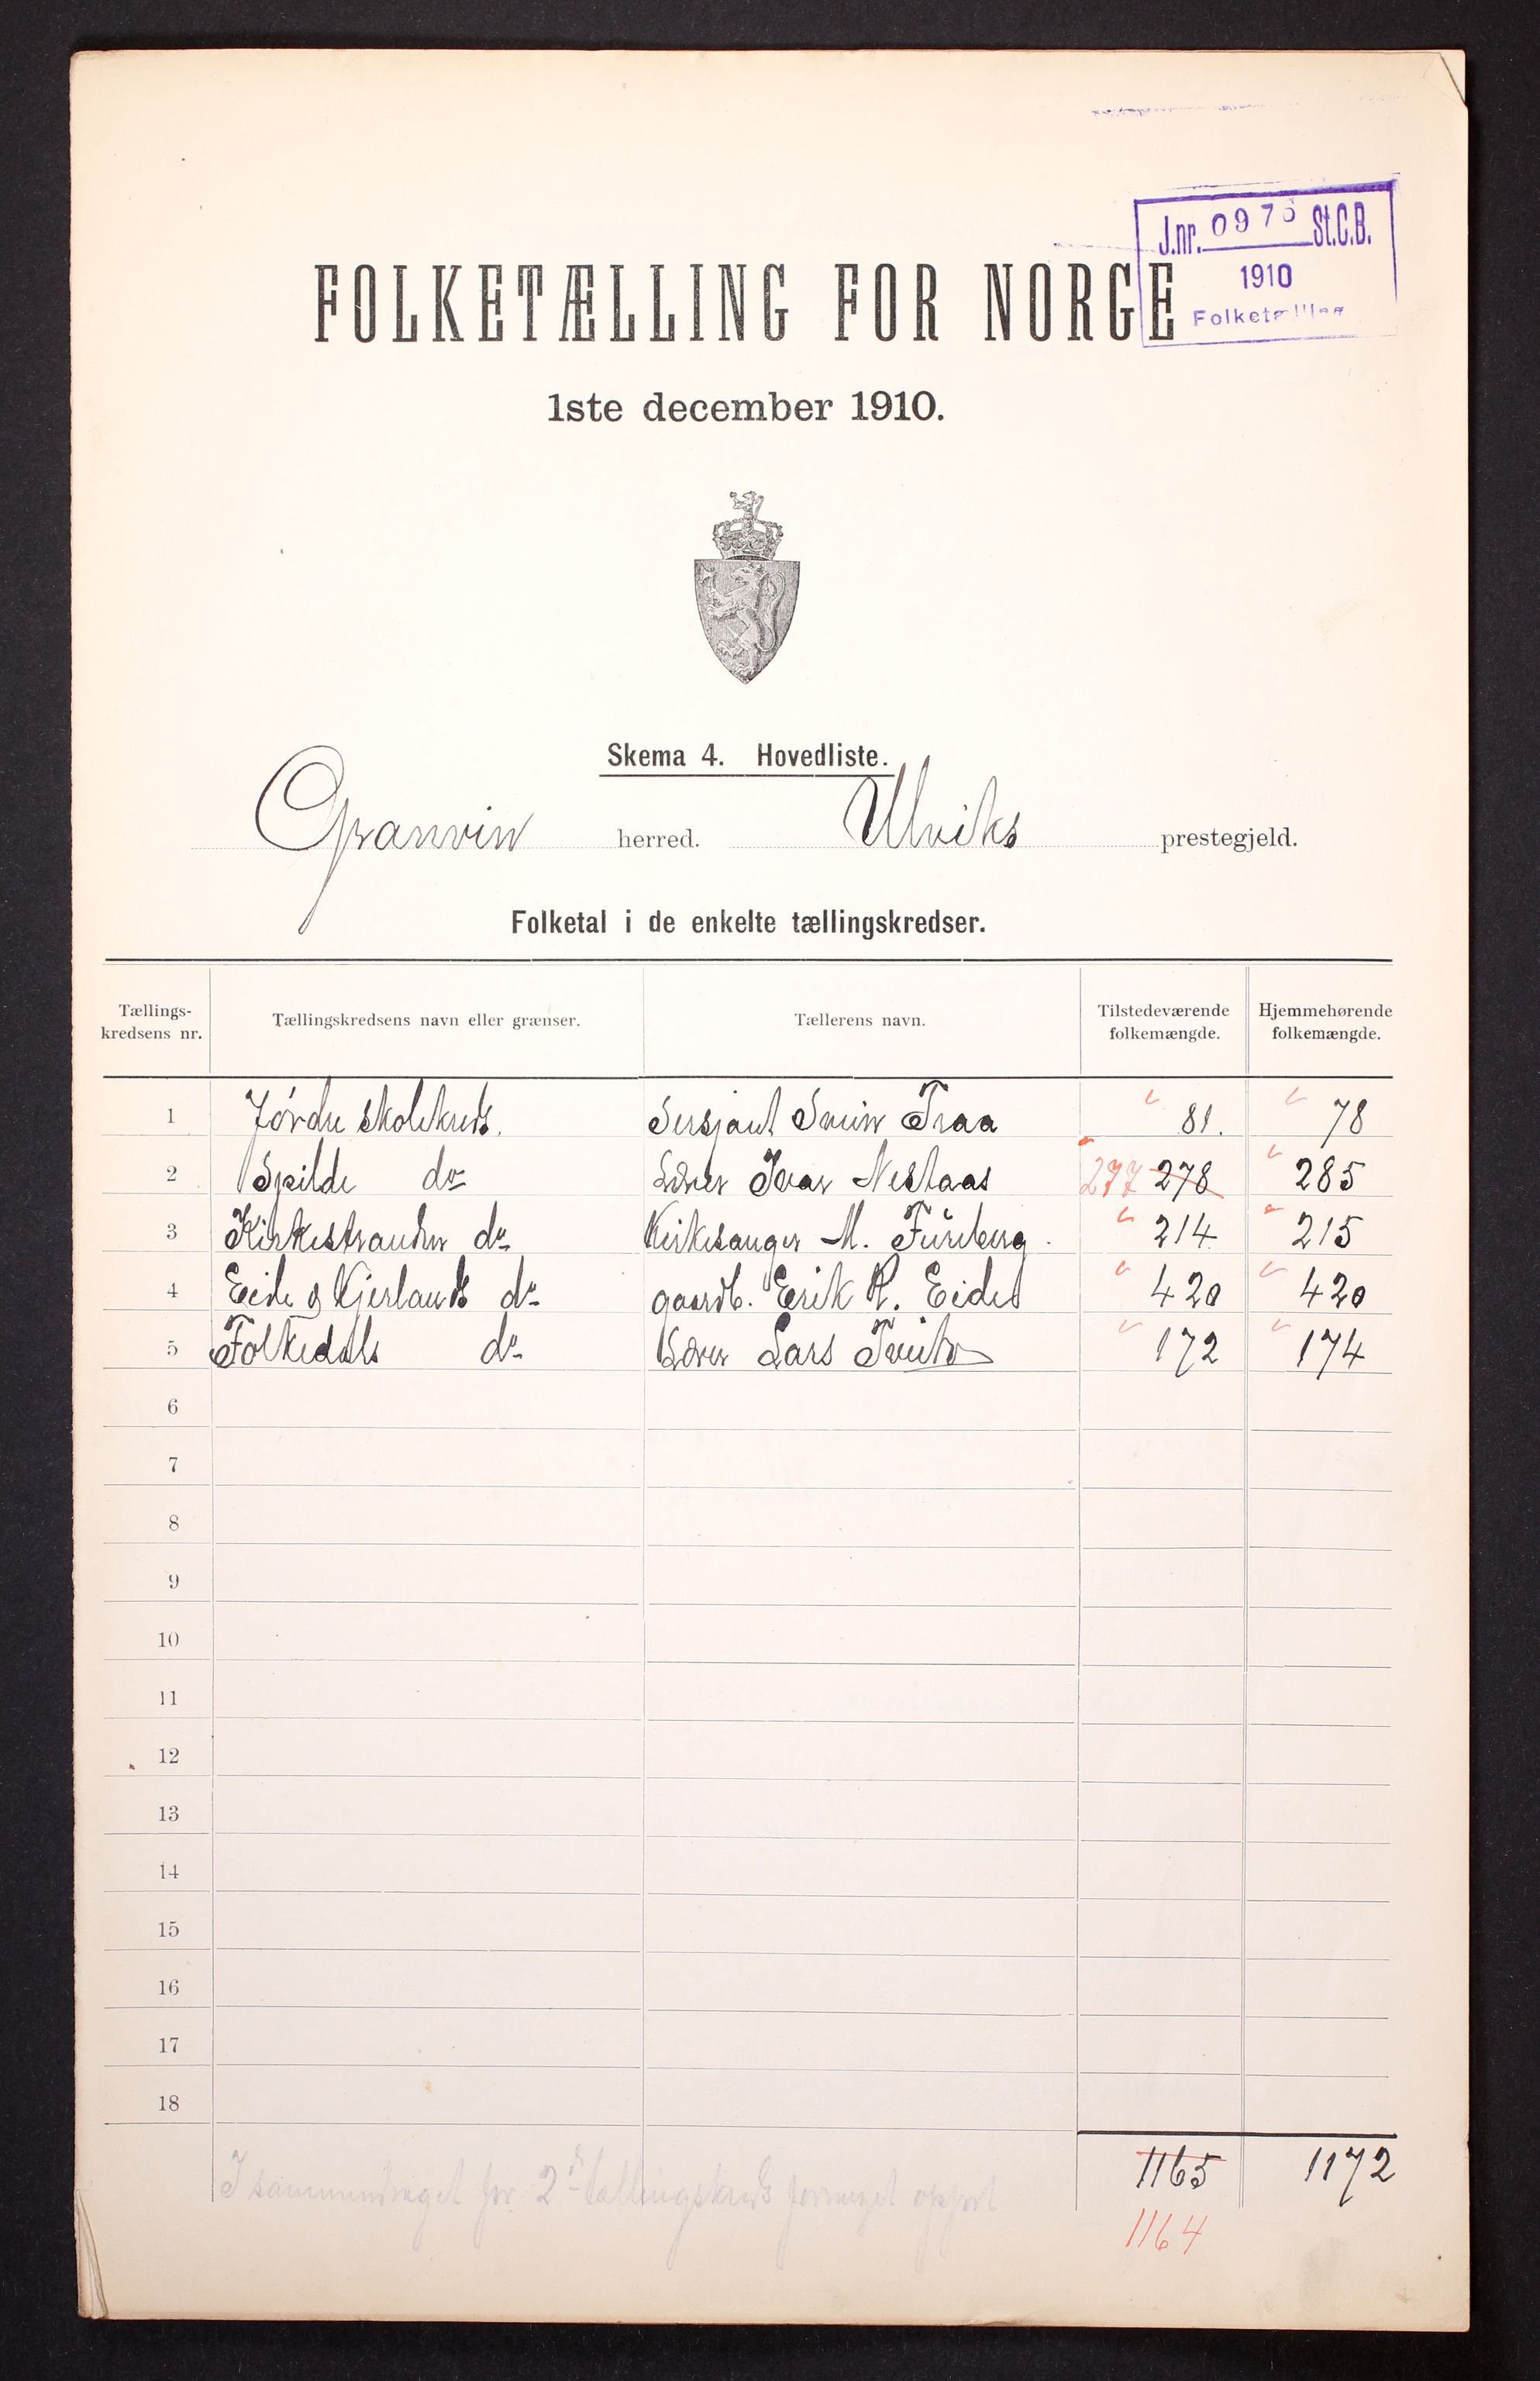 J.nr. 0976 St.C.B.
1910
Folketælling
FOLKETÆLLING FOR NORGE
1ste december 1910.
Skema 4. Hovedliste.
Granvin herred. Ulviks prestegjeld.
Folketal i de enkelte tællingskredser.
Tællings-kredsens nr. Tællingskredsens navn eller grænser. Tællerens navn. Tilstedeværende folkemængde. Hjemmehørende folkemængde.
1 Jørdre skolekreds. Sersjant Svein Traa 81. 78
2 Spilde do Lærer Ivar Nestaas 277 278 285
3 Kirkestranden do Kirkesanger M. Füreberg 214 215
4 Eide & Kjerlands do gaardb. Erik R. Eide 420 420
5 Folkedals do Lærer Lars Tveito 172 174
6
7
8
9
10
11
12
13
14
15
16
17
18
1165 1172
I sammendraget for 2 tællingskreds opført
1164